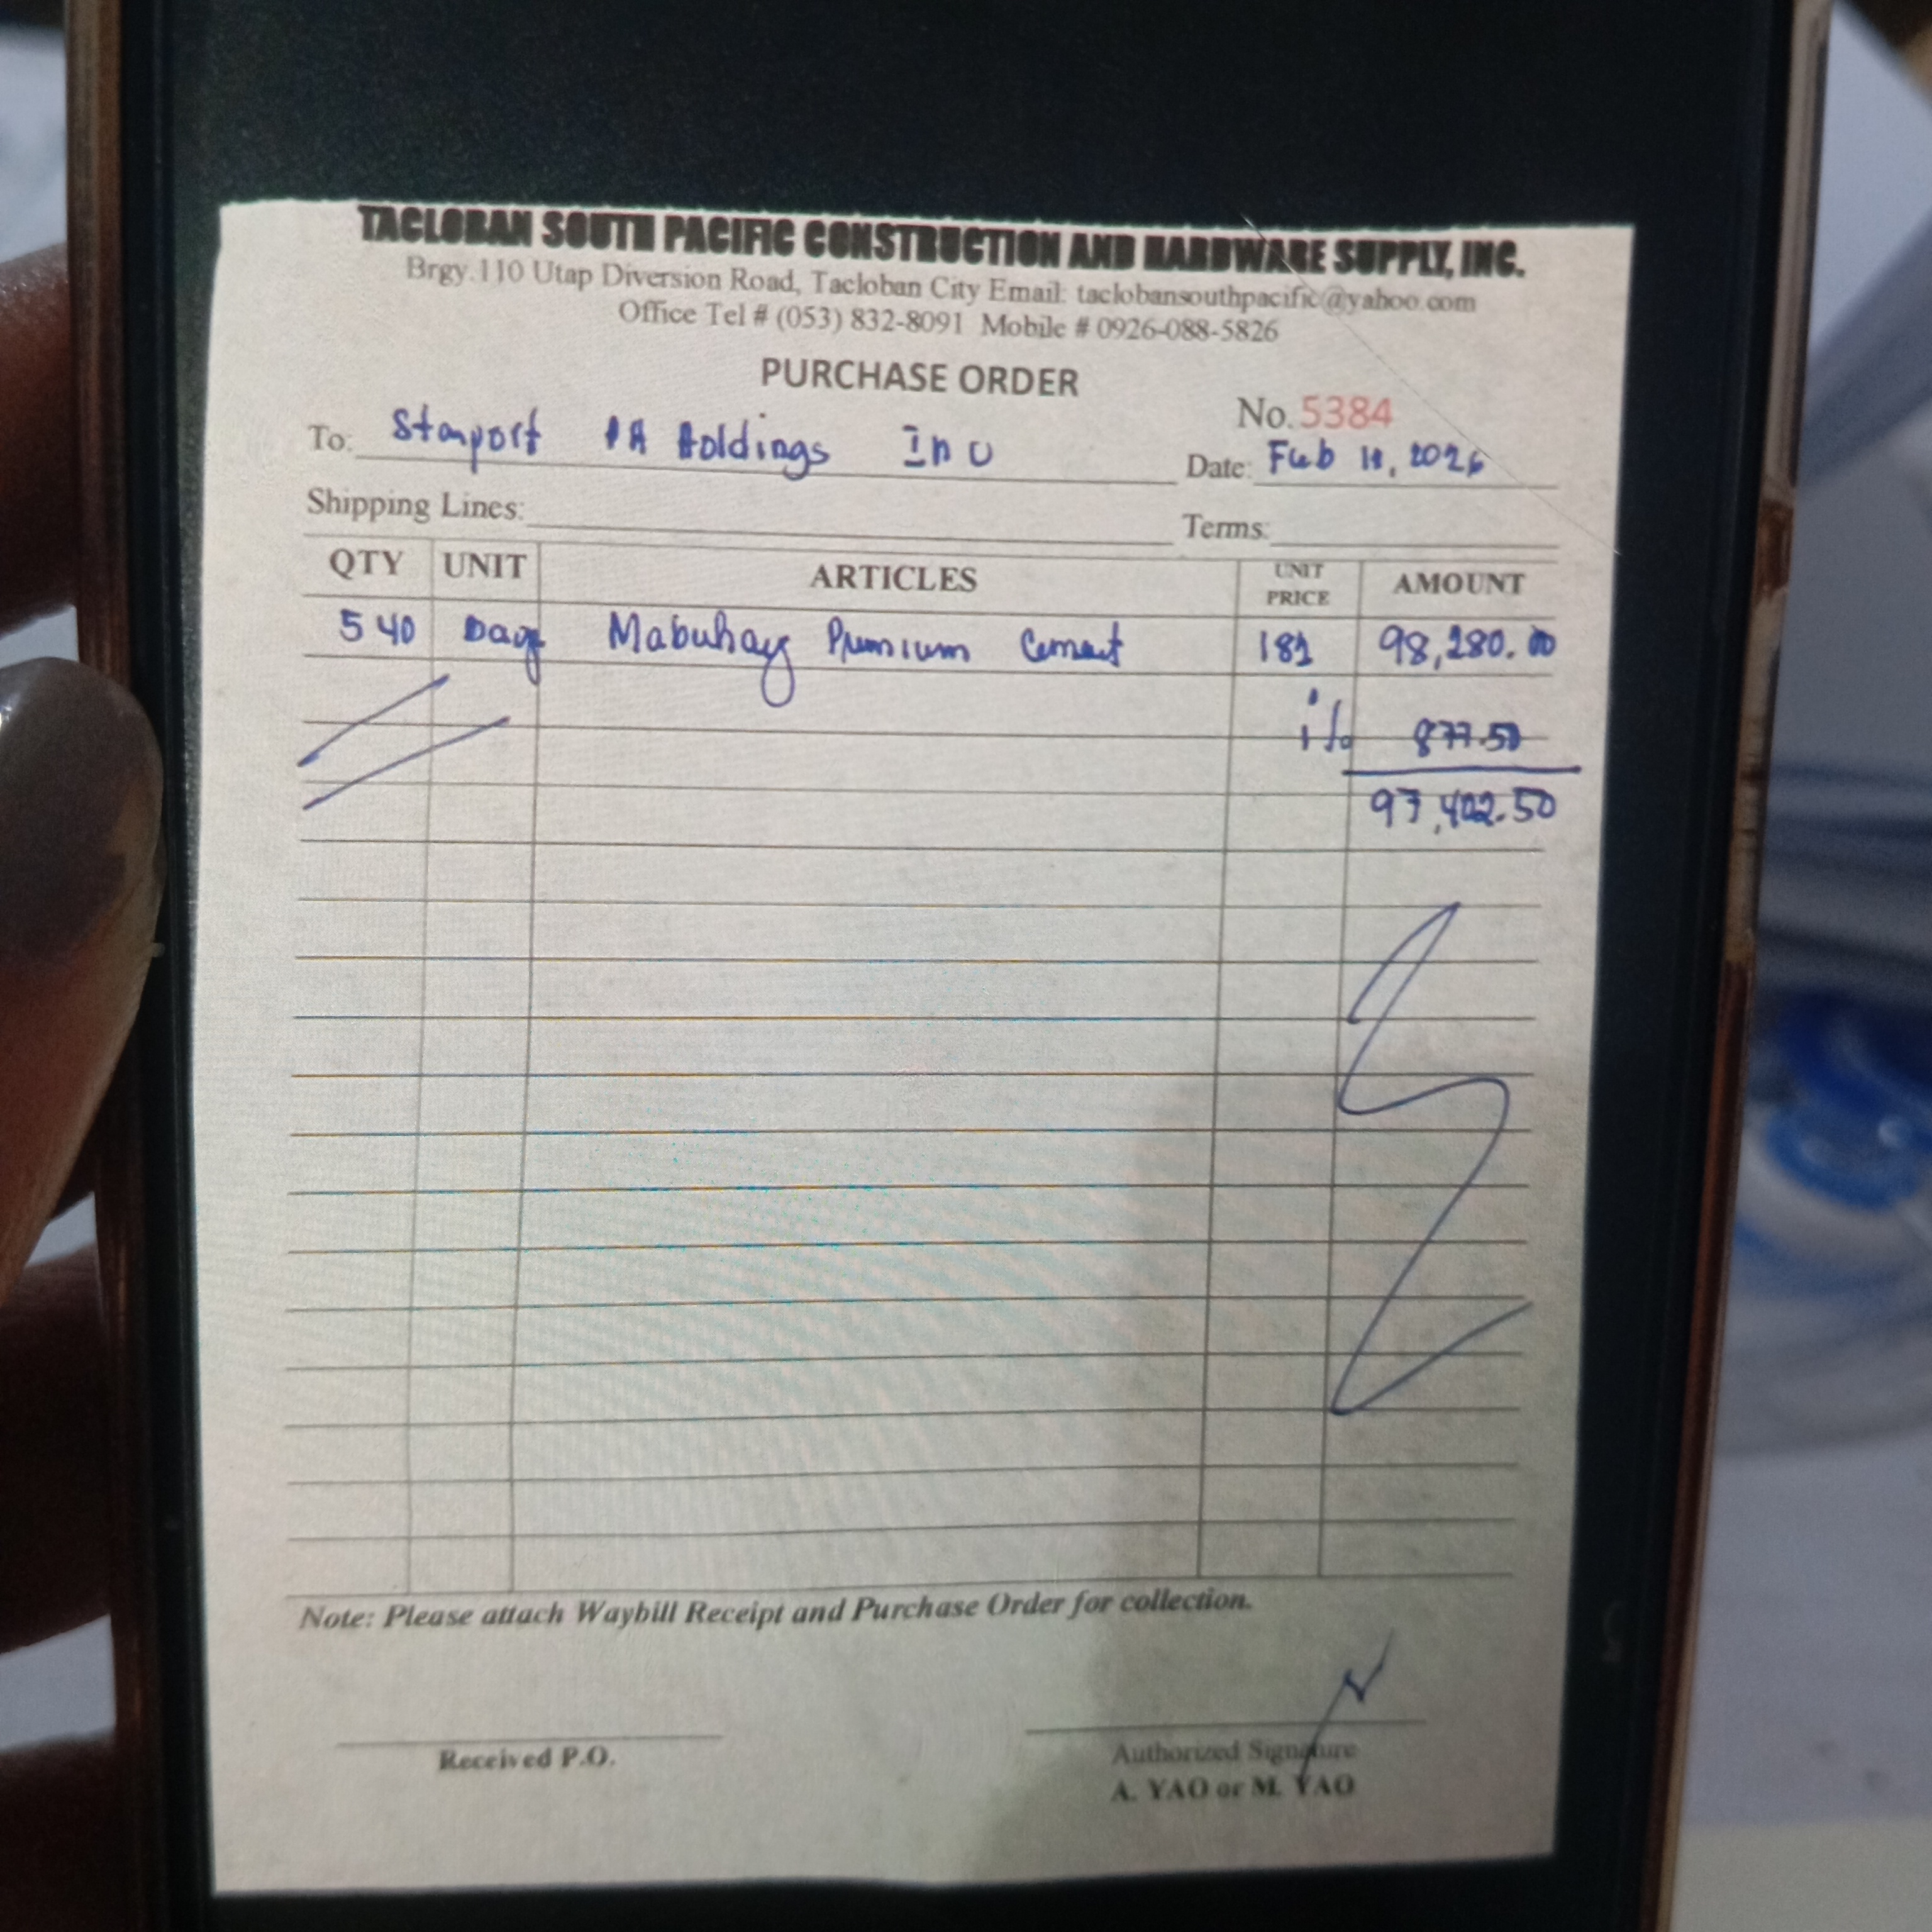 TACLOBAN SOUTH PACIFIC CONSTRUCTION AND HARDWARE SUPPLY, INC.
Brgy.110 Utap Diversion Road, Tacloban City Email: taclobansouthpacific@yahoo.com
Office Tel # (053) 832-8091 Mobile # 0926-088-5826
PURCHASE ORDER
No. 5384
To: Holdings Inc Date: Feb 2026
Shipping Lines: Terms:
QTY UNIT ARTICLES UNIT PRICE AMOUNT
540 Bags Mabuhay Premium Cement 182 98,280.00
1% 877.50
97,402.50
Note: Please attach Waybill Receipt and Purchase Order for collection.
Received P.O. Authorized Signature
A. YAO or M. YAO